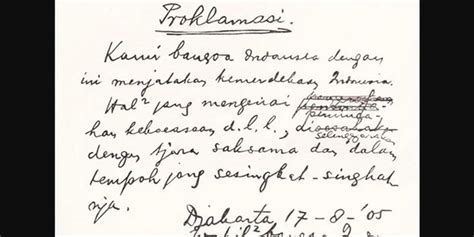 Proklamasi.
Kami bangsa Indonesia dengan
ini menjatakan kemerdekaan Indonesia.
Hal² jang mengenai
peminda-
han kekoeasaan d.l.l.,
selenggarakan
dengan tjara saksama dan dalam
tempoh jang sesingkat-singkat
nja.
Djakarta, 17 - 8 - '05